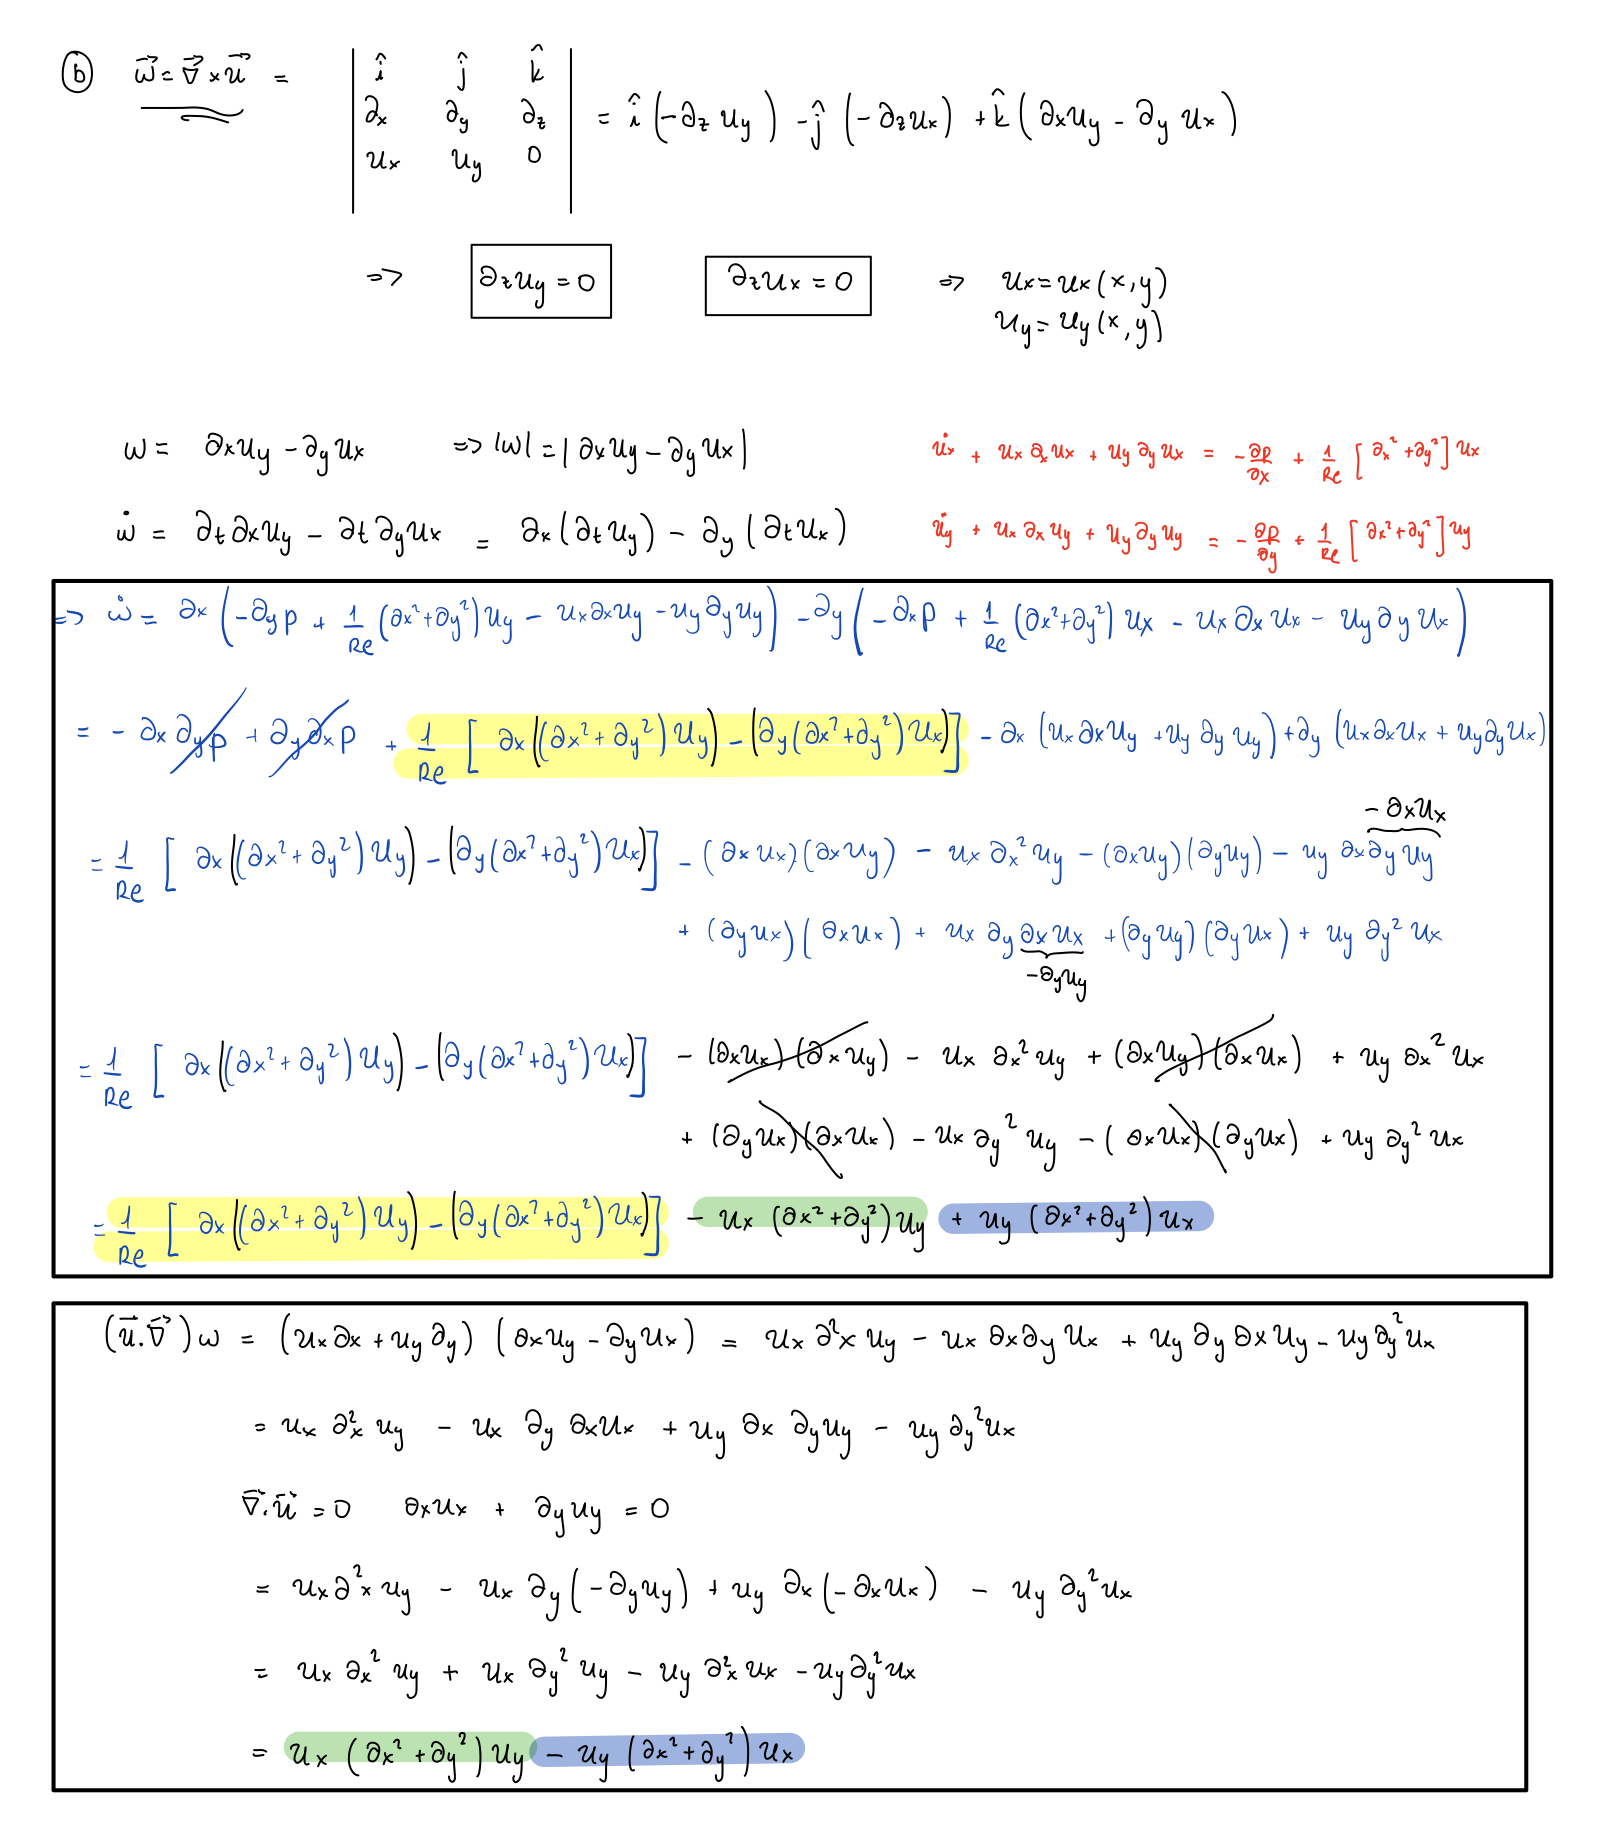 ⓑ ω⃗ = ∇⃗ × u⃗ = | î ĵ k̂ ; ∂x ∂y ∂z ; ux uy 0 | = î (-∂z uy) - ĵ (-∂z ux) + k̂ (∂x uy - ∂y ux)
=> ∂z uy = 0 ∂z ux = 0 => ux = ux(x,y)
uy = uy(x,y)
ω = ∂x uy - ∂y ux => |ω| = |∂x uy - ∂y ux|
u̇x + ux ∂x ux + uy ∂y ux = -∂p/∂x + 1/Re [∂x² + ∂y²] ux
ω̇ = ∂t ∂x uy - ∂t ∂y ux = ∂x (∂t uy) - ∂y (∂t ux)
u̇y + ux ∂x uy + uy ∂y uy = -∂p/∂y + 1/Re [∂x² + ∂y²] uy
=> ω̇ = ∂x (-∂y p + 1/Re (∂x² + ∂y²) uy - ux ∂x uy - uy ∂y uy) - ∂y (-∂x p + 1/Re (∂x² + ∂y²) ux - ux ∂x ux - uy ∂y ux)
= - ∂x ∂y p + ∂y ∂x p + 1/Re [∂x ((∂x² + ∂y²) uy) - (∂y (∂x² + ∂y²) ux)] - ∂x (ux ∂x uy + uy ∂y uy) + ∂y (ux ∂x ux + uy ∂y ux)
- ∂x ux
= 1/Re [∂x ((∂x² + ∂y²) uy) - (∂y (∂x² + ∂y²) ux)] - (∂x ux)(∂x uy) - ux ∂x² uy - (∂x uy)(∂y uy) - uy ∂x ∂y uy
+ (∂y ux)(∂x ux) + ux ∂y ∂x ux + (∂y uy)(∂y ux) + uy ∂y² ux
-∂y uy
= 1/Re [∂x ((∂x² + ∂y²) uy) - (∂y (∂x² + ∂y²) ux)] - (∂x ux)(∂x uy) - ux ∂x² uy + (∂x uy)(∂x ux) + uy ∂x² ux
+ (∂y ux)(∂x ux) - ux ∂y² uy - (∂x ux)(∂y ux) + uy ∂y² ux
= 1/Re [∂x ((∂x² + ∂y²) uy) - (∂y (∂x² + ∂y²) ux)] - ux (∂x² + ∂y²) uy + uy (∂x² + ∂y²) ux
(u⃗.∇⃗) ω = (ux ∂x + uy ∂y) (∂x uy - ∂y ux) = ux ∂²x uy - ux ∂x ∂y ux + uy ∂y ∂x uy - uy ∂y² ux
= ux ∂x² uy - ux ∂y ∂x ux + uy ∂x ∂y uy - uy ∂y² ux
∇⃗.u⃗ = 0 ∂x ux + ∂y uy = 0
= ux ∂²x uy - ux ∂y (-∂y uy) + uy ∂x (-∂x ux) - uy ∂y² ux
= ux ∂x² uy + ux ∂y² uy - uy ∂x² ux - uy ∂y² ux
= ux (∂x² + ∂y²) uy - uy (∂x² + ∂y²) ux